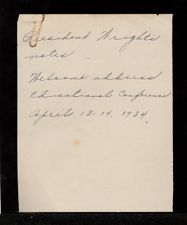 President Wright's
notes -
Welcome address
Educational Conference
April 12-14, 1934.